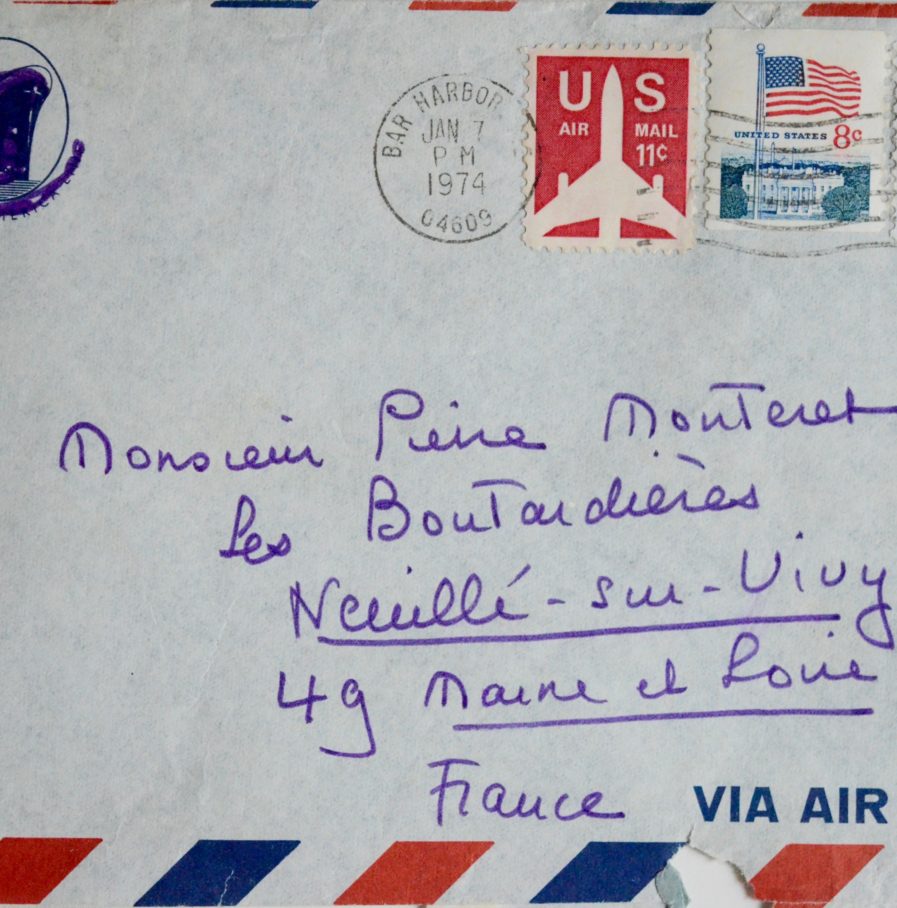 BAR HARBOR
JAN 7
PM
1974
04609
US
AIR MAIL
11¢
UNITED STATES 8c
Monsieur Pierre Monteret
Les Boutardières
Neuillé-sur-Vivy
49 Maine et Loire
France
VIA AIR